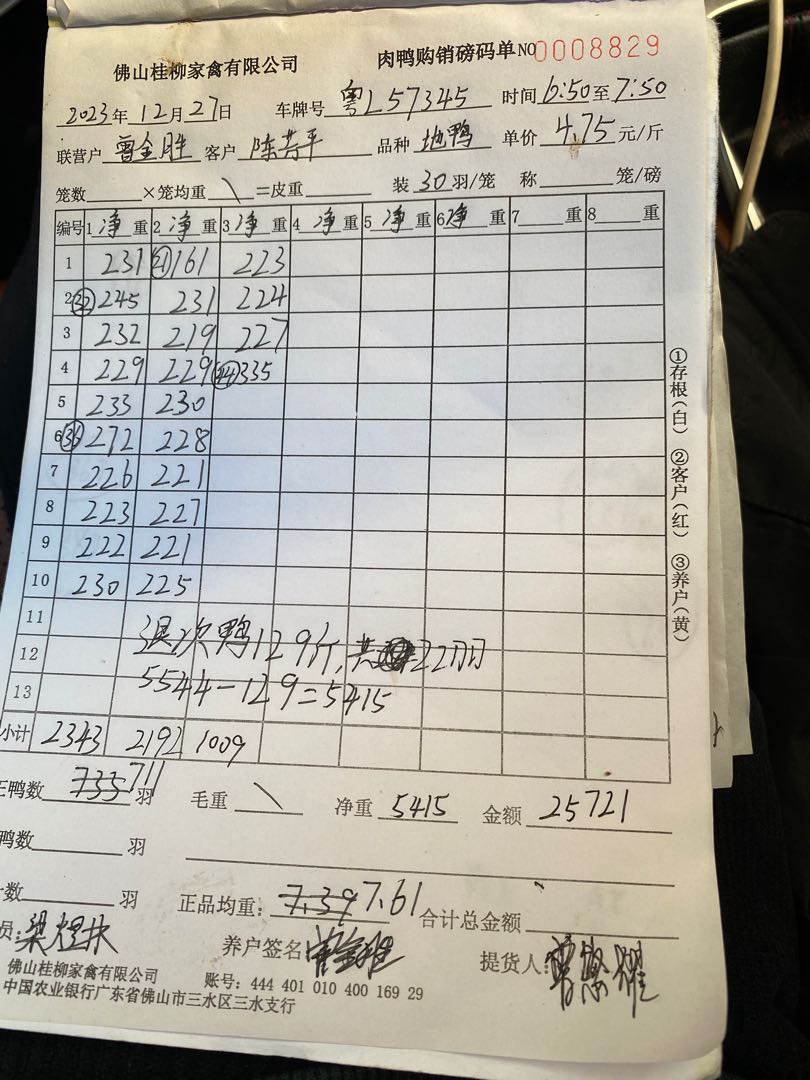 佛山桂柳家禽有限公司 肉鸭购销磅码单 NO 0008829
2023年12月27日 车牌号 粤L57345 时间 6:50至7:50
联营户 曾金胜 客户 陈芳平 品种 地鸭 单价 4.75 元/斤
笼数 ×笼均重 \ =皮重 装 30 羽/笼 称 笼/磅
编号 1 净 重 2 净 重 3 净 重 4 净 重 5 净 重 6 净 重 7 重 8 重
1 231 (21)161 223
2 (32)245 231 224
3 232 219 227
4 229 229 (44)335
5 233 230
6 (36)272 228
7 226 221
8 223 227
9 222 221
10 230 225
11
12 退次鸭129斤,共22羽
13 5544-129=5415
小计 2343 2192 1009
正鸭数 735 711 羽 毛重 \ 净重 5415 金额 25721
鸭数 羽
数 羽 正品均重: 7.39 7.61 合计总金额
员: 梁煜扶 养户签名: 提货人: 曾繁耀
佛山桂柳家禽有限公司 账号: 444 401 010 400 169 29
中国农业银行广东省佛山市三水区三水支行
①存根(白) ②客户(红) ③养户(黄)